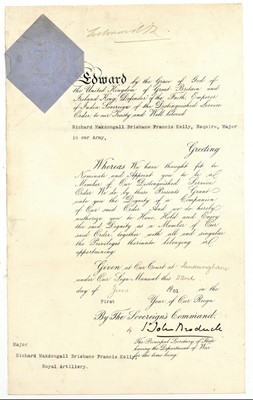 Edward R
Edward by the Grace of God of
the United Kingdom of Great Britain and
Ireland King, Defender of the Faith, Emperor
of India, Sovereign of the Distinguished Service
Order, to our Trusty and Well beloved
Richard Makdougall Brisbane Francis Kelly, Esquire, Major
in our Army,
Greeting
Whereas We have thought fit to
Nominate and Appoint you to be a
Member of Our Distinguished Service
Order We do by these Presents Grant
unto you the Dignity of a Companion
of Our said Order And we do hereby
authorize you to Have Hold and Enjoy
the said Dignity as a Member of Our
said Order together with all and singular
the Privileges thereunto belonging or
appertaining
Given at Our Court at
under Our Sign Manual this
day of June 1901 in the
First Year of Our Reign
By The Sovereign's Command.
St John Brodrick
The Principal Secretary of State
having the Department of War
for the time being.
Major
Richard Makdougall Brisbane Francis Kelly,
Royal Artillery.